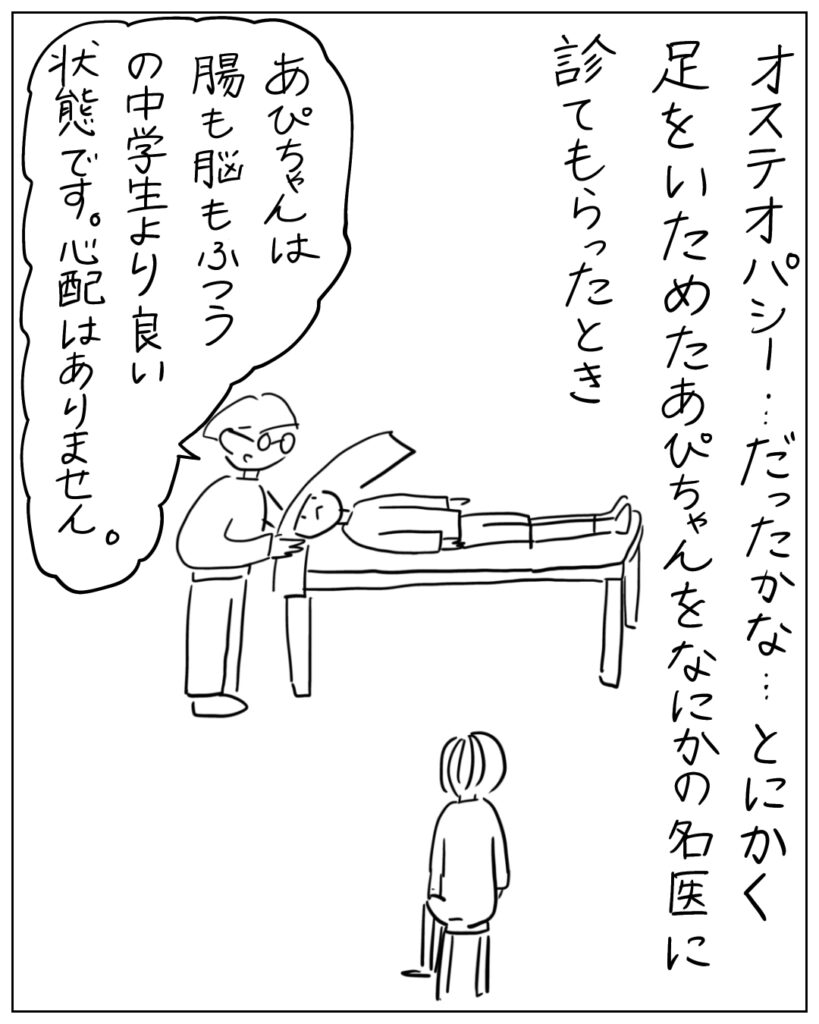 オステオパシー…だったかな…とにかく
足をいためたあぴちゃんをなにかの名医に
診てもらったとき
あぴちゃんは
腸も脳もふつう
の中学生より良い
状態です。心配はありません。